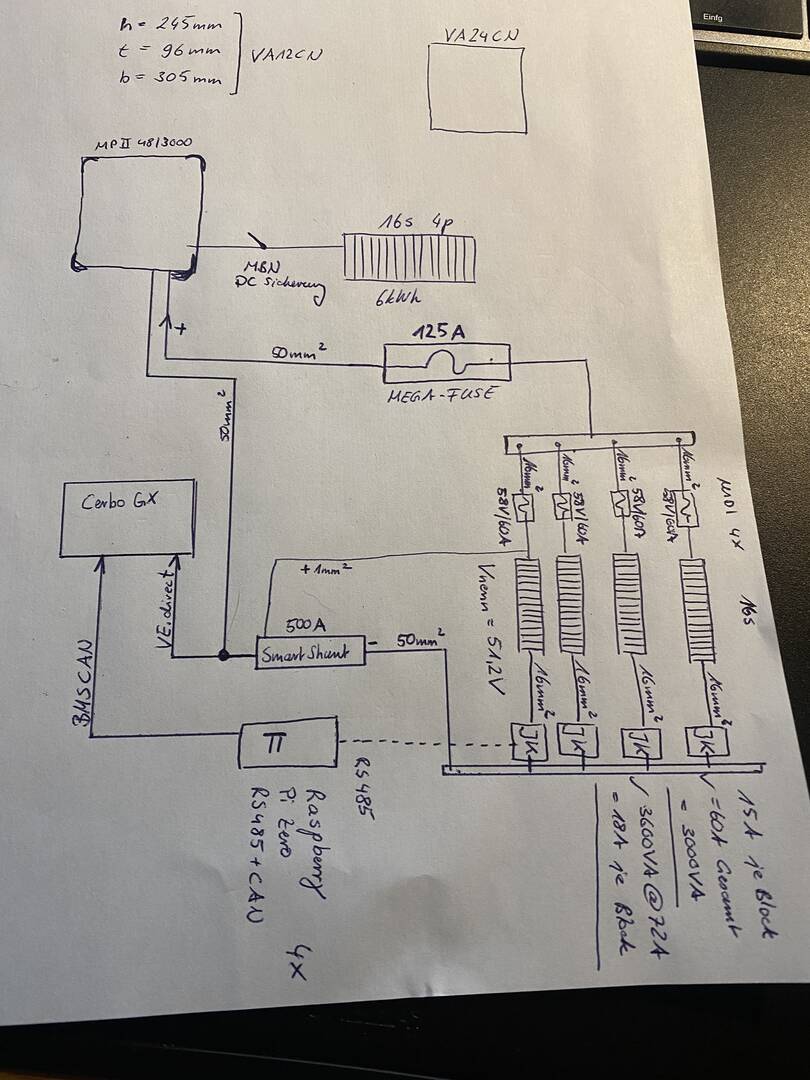 Einfg
h = 245mm
t = 96mm
b = 305mm
VA12CN
VA24CN
MP II 48/3000
16s 4p
MBN
DC Sicherung
6kWh
+
50mm²
125A
MEGA-FUSE
50mm²
16mm²
16mm²
16mm²
16mm²
58V/60A
58V/60A
58V/60A
58V/60A
MIDI 4x
16s
Cerbo GX
BMSCAN
VE.direct
+1mm²
500A
Smart Shunt
-
50mm²
Vnenn = 51,2V
16mm²
16mm²
16mm²
16mm²
JK
JK
JK
JK
π
RS485
Raspberry
Pi Zero
RS485+CAN
4x
15A je Block
✓ =60A Gesamt
= 3000VA
✓ 3600VA@72A
= 18A je Block